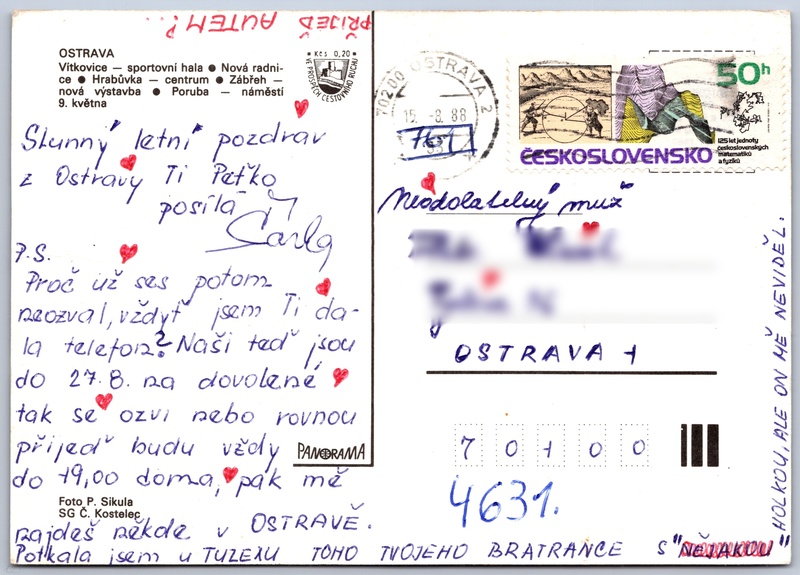 PŘIJEĎ AUTEM!
OSTRAVA
Vítkovice — sportovní hala ● Nová radni-
ce ● Hrabůvka — centrum ● Zábřeh —
nová výstavba ● Poruba — náměstí
9. května
Kčs 0,20
VE PROSPĚCH CESTOVNÍHO RUCHU
Slunný letní pozdrav
z Ostravy Ti Peťko
posílá
Šarla
P.S.
Proč už ses potom
neozval, vždyť jsem Ti da-
la telefon? Naši teď jsou
do 27.8. na dovolené
tak se ozvi nebo rovnou
přijeď budu vždy
do 19,00 doma, pak mě
najdeš někde v OSTRAVĚ.
Potkala jsem u TUZEXU TOHO TVOJEHO BRATRANCE S "NĚJAKOU"
HOLKOU, ALE ON MĚ NEVIDĚL.
Foto P. Sikula
SG Č. Kostelec
PANORAMA
70200 OSTRAVA 2
15.-8.88
761
50h
125 let jednoty
československých
matematiků
a fyziků
ČESKOSLOVENSKO
Neodolatelný muž
OSTRAVA 1
70100
4631.